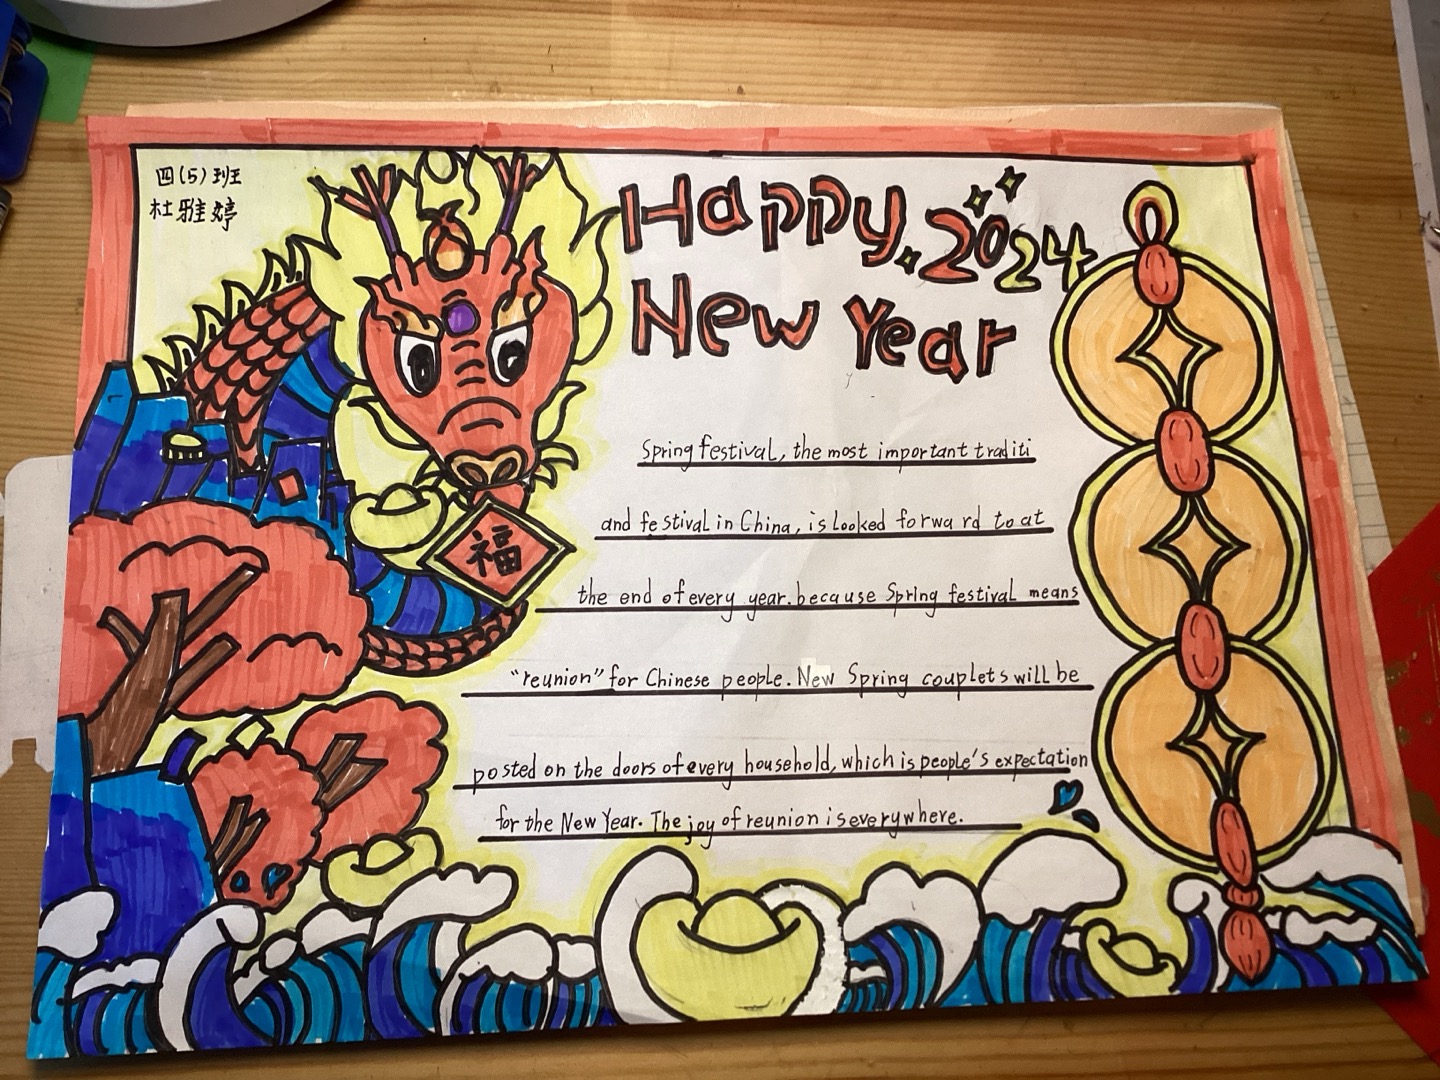 四(5)班
杜雅婷
Happy 2024
New Year
福
Spring festival, the most important traditi
and festival in China, is looked forward to at
the end of every year. because Spring festival means
"reunion" for Chinese people. New Spring couplets will be
posted on the doors of every household, which is people's expectation
for the New Year. The joy of reunion is everywhere.